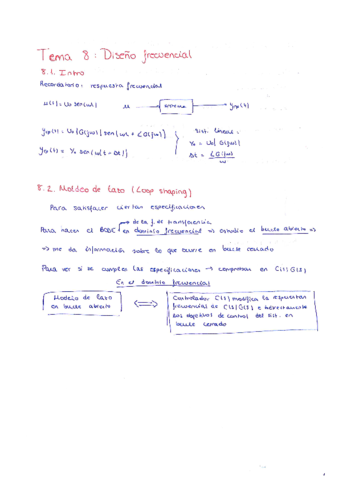 Tema 8: Diseño frecuencial
8.1. Intro
Recordatorio: respuesta frecuencial
u(t) = U₀ sen(ωt) u → → y_rp(t)
y_rp(t) = U₀ |G(jω)| sen(ωt + ∠G(jω))
Sist. lineales:
Y₀ = U₀ |G(jω)|
y_rp(t) = Y₀ sen(ω(t - Δt))
Δt = ∠G(jω) / ω
8.2. Moldeo de lazo (Loop shaping)
Para satisfacer ciertas especificaciones
→ de la f. de transferencia
Para hacer el en dominio frecuencial ⇒ estudio el bucle abierto ⇒
⇒ me da información sobre lo que ocurre en bucle cerrado
Para ver si se cumplen las especificaciones → comprobar en C(s)G(s)
En el dominio frecuencial
Moldeo de lazo en bucle abierto
⟺
Controlador C(s) modifica la respuesta frecuencial de C(s)G(s) e
los objetivos de control del sist. en bucle cerrado